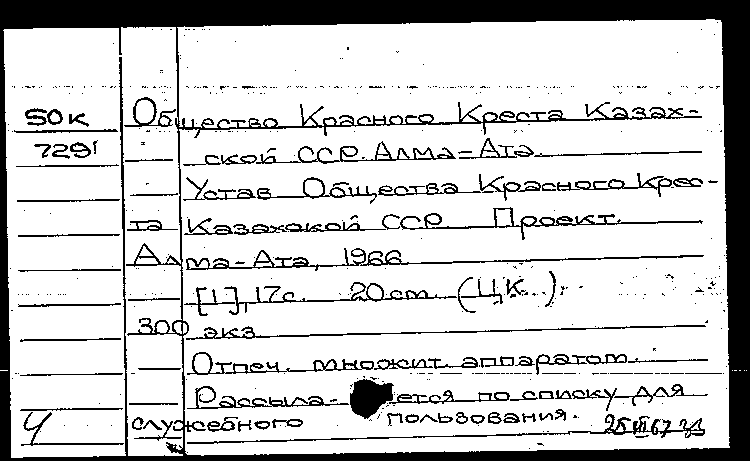 50к Общество Красного Креста Казах-
729¹ ской ССР. Алма-Ата.
Устав Общества Красного Крес-
та Казахской ССР. Проект.
Алма-Ата, 1966
[1], 17с. 20cm. (Ц.К.).
300 экз
Отпеч. множит. аппаратом.
Рассыла- ется по списку для
Ч служебного пользования. 25 III 67